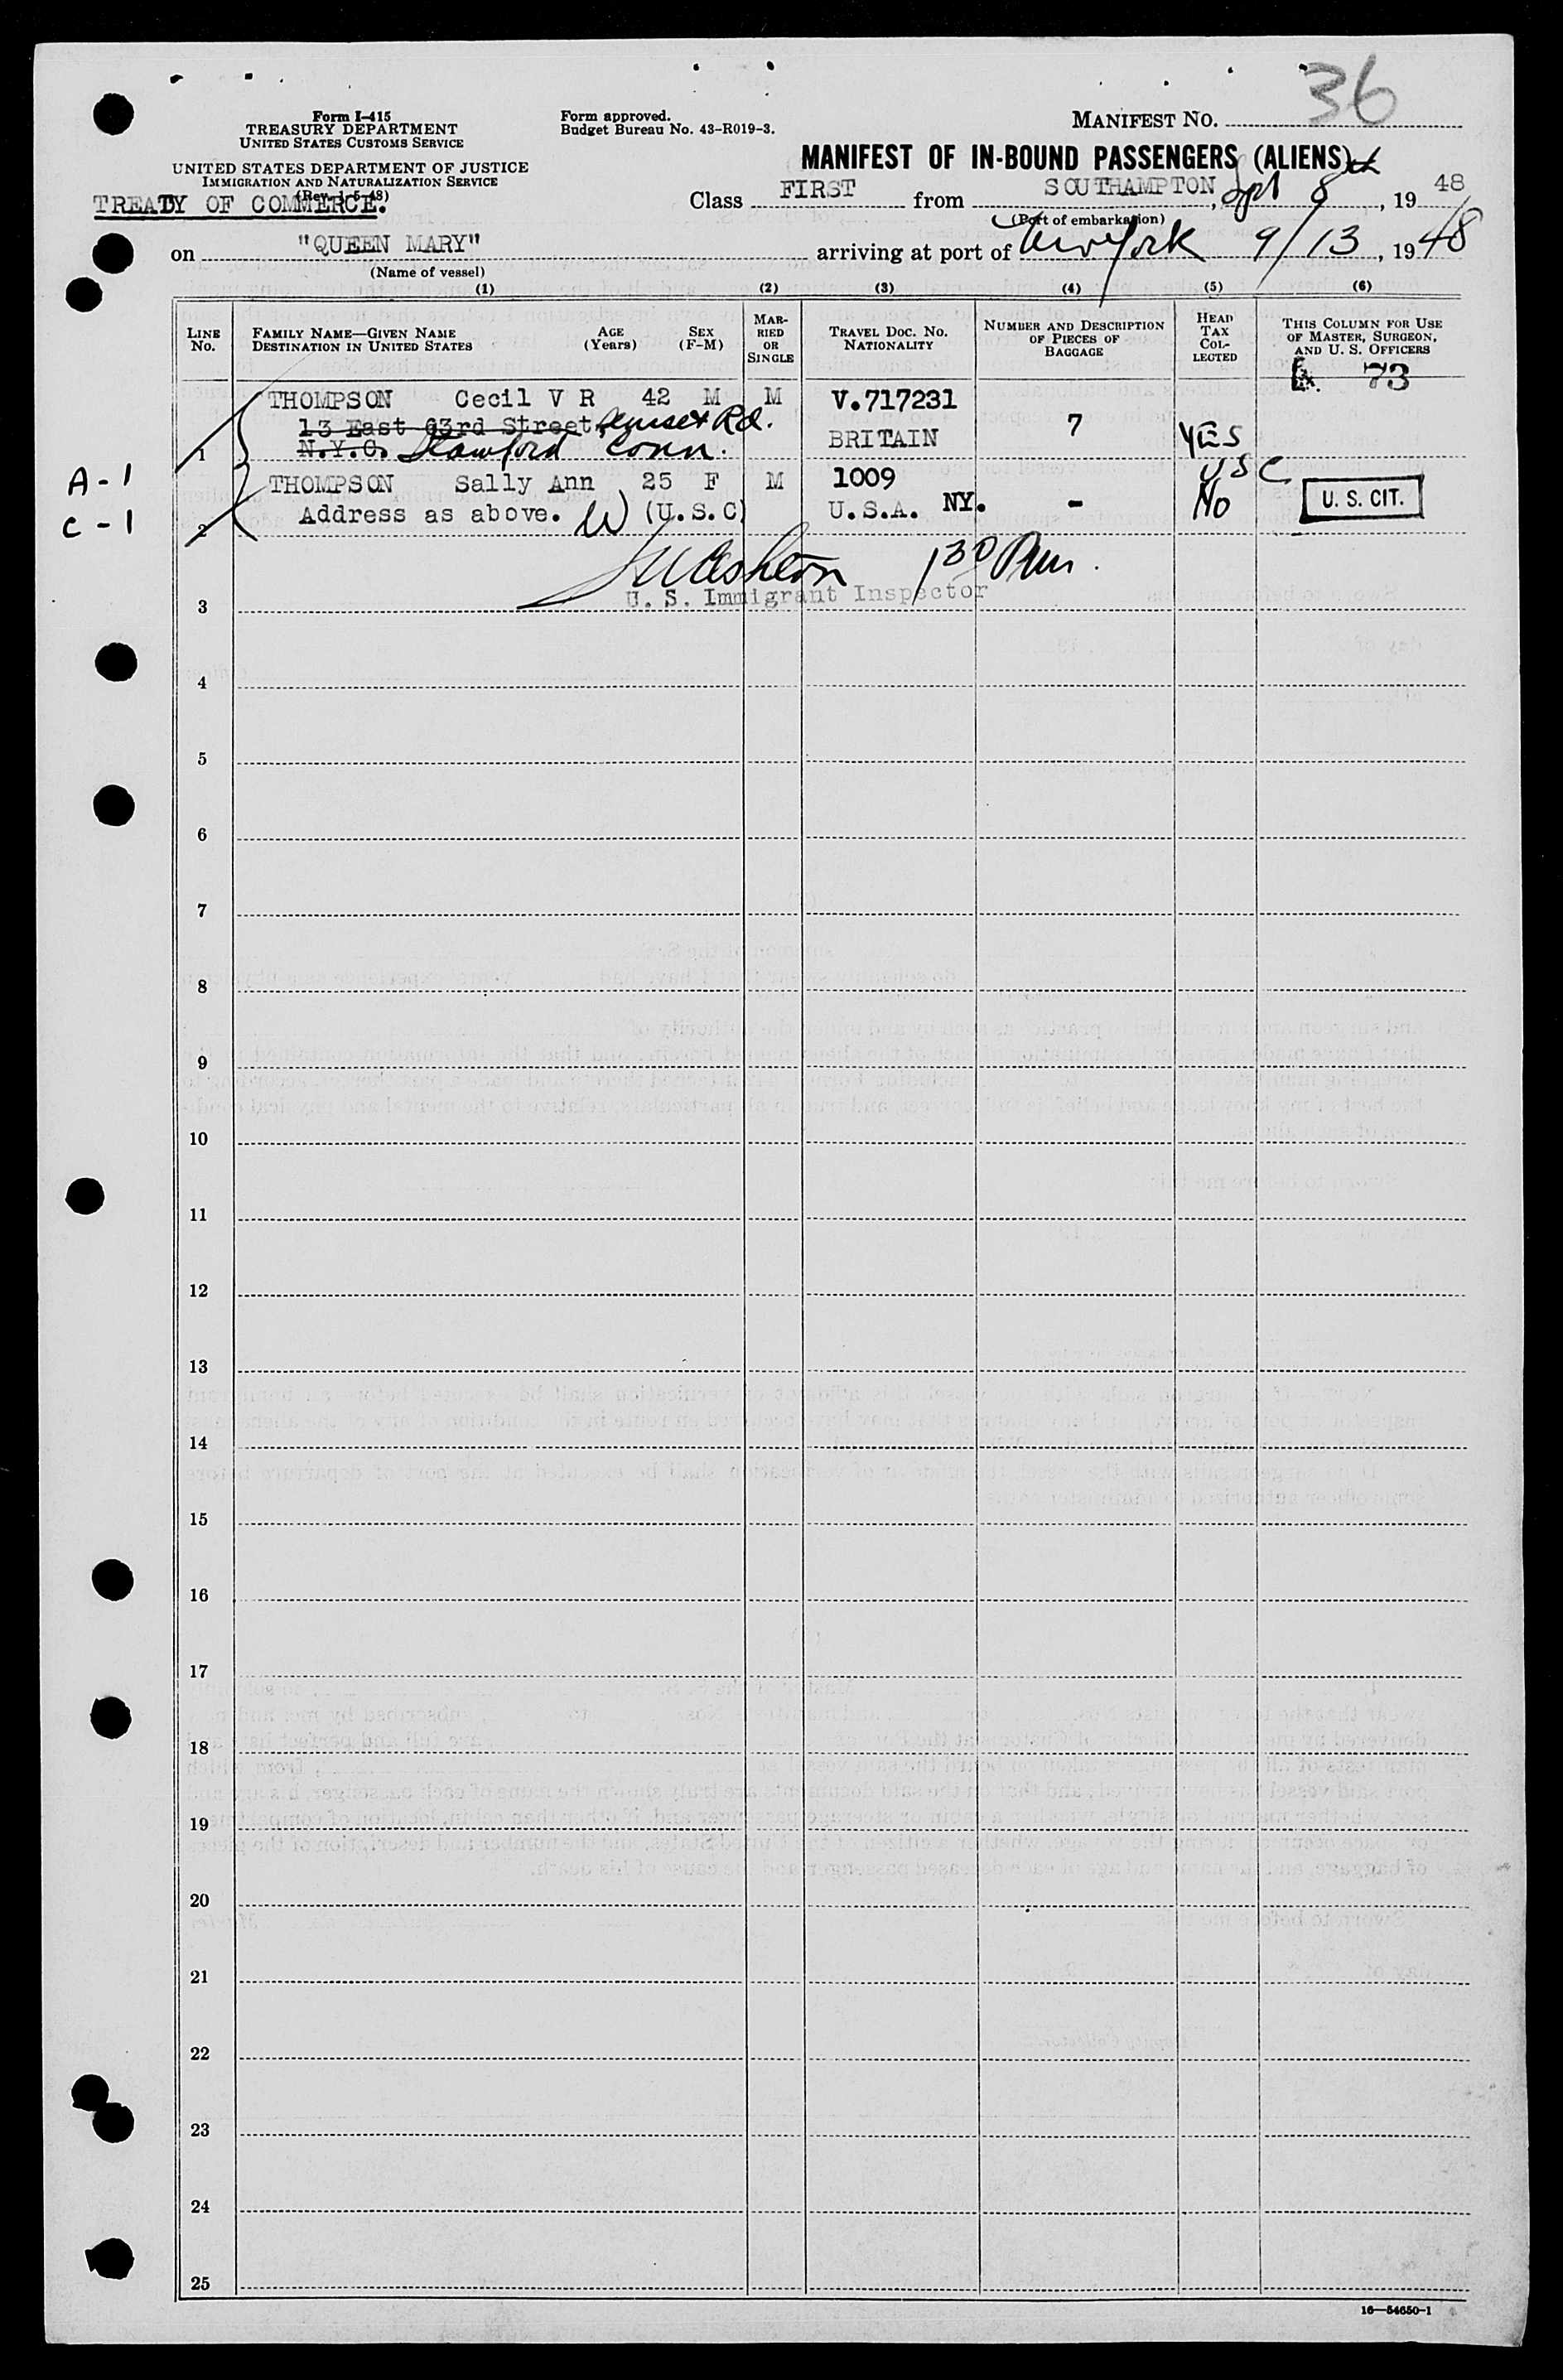 36
Form I-415
TREASURY DEPARTMENT
UNITED STATES CUSTOMS SERVICE
Form approved.
Budget Bureau No. 43-R019-3.
MANIFEST NO.
UNITED STATES DEPARTMENT OF JUSTICE
IMMIGRATION AND NATURALIZATION SERVICE
(Rev. 1-5-48)
TREATY OF COMMERCE.
MANIFEST OF IN-BOUND PASSENGERS (ALIENS)
Class FIRST from SOUTHAMPTON, Sept 8th, 1948
(Port of embarkation)
on "QUEEN MARY" arriving at port of New York 9/13, 1948
(Name of vessel)
(1) (2) (3) (4) (5) (6)
LINE No. FAMILY NAME—GIVEN NAME DESTINATION IN UNITED STATES AGE (Years) SEX (F-M) MARRIED OR SINGLE TRAVEL DOC. NO. NATIONALITY NUMBER AND DESCRIPTION OF PIECES OF BAGGAGE HEAD TAX COLLECTED THIS COLUMN FOR USE OF MASTER, SURGEON, AND U. S. OFFICERS
73
THOMPSON Cecil V R 42 M M V.717231
13 East 63rd Street, Sunset Rd. 7
1 N.Y.C. Stamford Conn. BRITAIN YES
A-1 THOMPSON Sally Ann 25 F M 1009 USC
C-1 2 Address as above. W (U.S.C) U.S.A. NY. - No U. S. CIT.
130 Pm.
3 U. S. Immigrant Inspector
4
5
6
7
8
9
10
11
12
13
14
15
16
17
18
19
20
21
22
23
24
25
16—54650-1